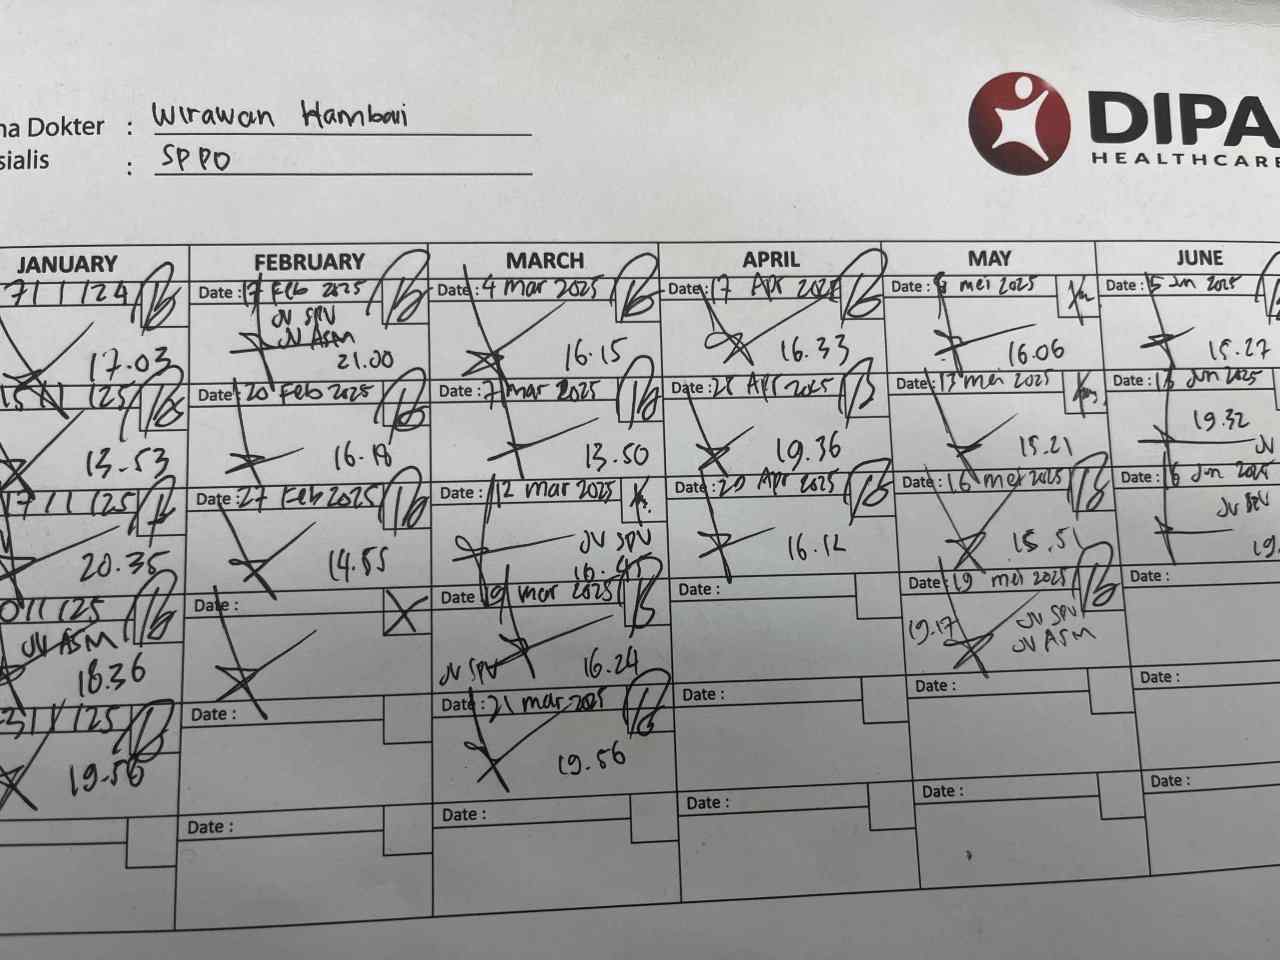 na Dokter : Wirawan Hambali
sialis : SPPD
DIPA
HEALTHCARE
JANUARY
7/1/24
17.03
15/1/25
13-53
17/1/25
20.35
0/1/25
JV ASM
18.36
31/1/25
19-56
FEBRUARY
Date : 17 Feb 2025
JV SPV
JV ASM
21.00
Date : 20 Feb 2025
16.18
Date : 27 Feb 2025
14.55
Date :
Date :
Date :
MARCH
Date : 4 Mar 2025
16.15
Date : 7 Mar 2025
13.50
Date : 12 Mar 2025
JV SPV
16.45
Date 19 Mar 2025
JV SPV 16.24
Date : 21 Mar 2025
19.56
Date :
APRIL
Date : 17 Apr 2025
16.33
Date : Apr 2025
19.36
Date : Apr 2025
16.12
Date :
Date :
Date :
MAY
Date : Mei 2025
16.06
Date : 13 Mei 2025
15.21
Date : 16 Mei 2025
15.51
Date : 19 Mei 2025
19.17 JV SPV
JV ASM
Date :
Date :
JUNE
Date : 5 Jun 2025
15.27
Date : Jun 2025
19.32
JV
Date : 16 Jun 2025
JV SPV
19.
Date :
Date :
Date :